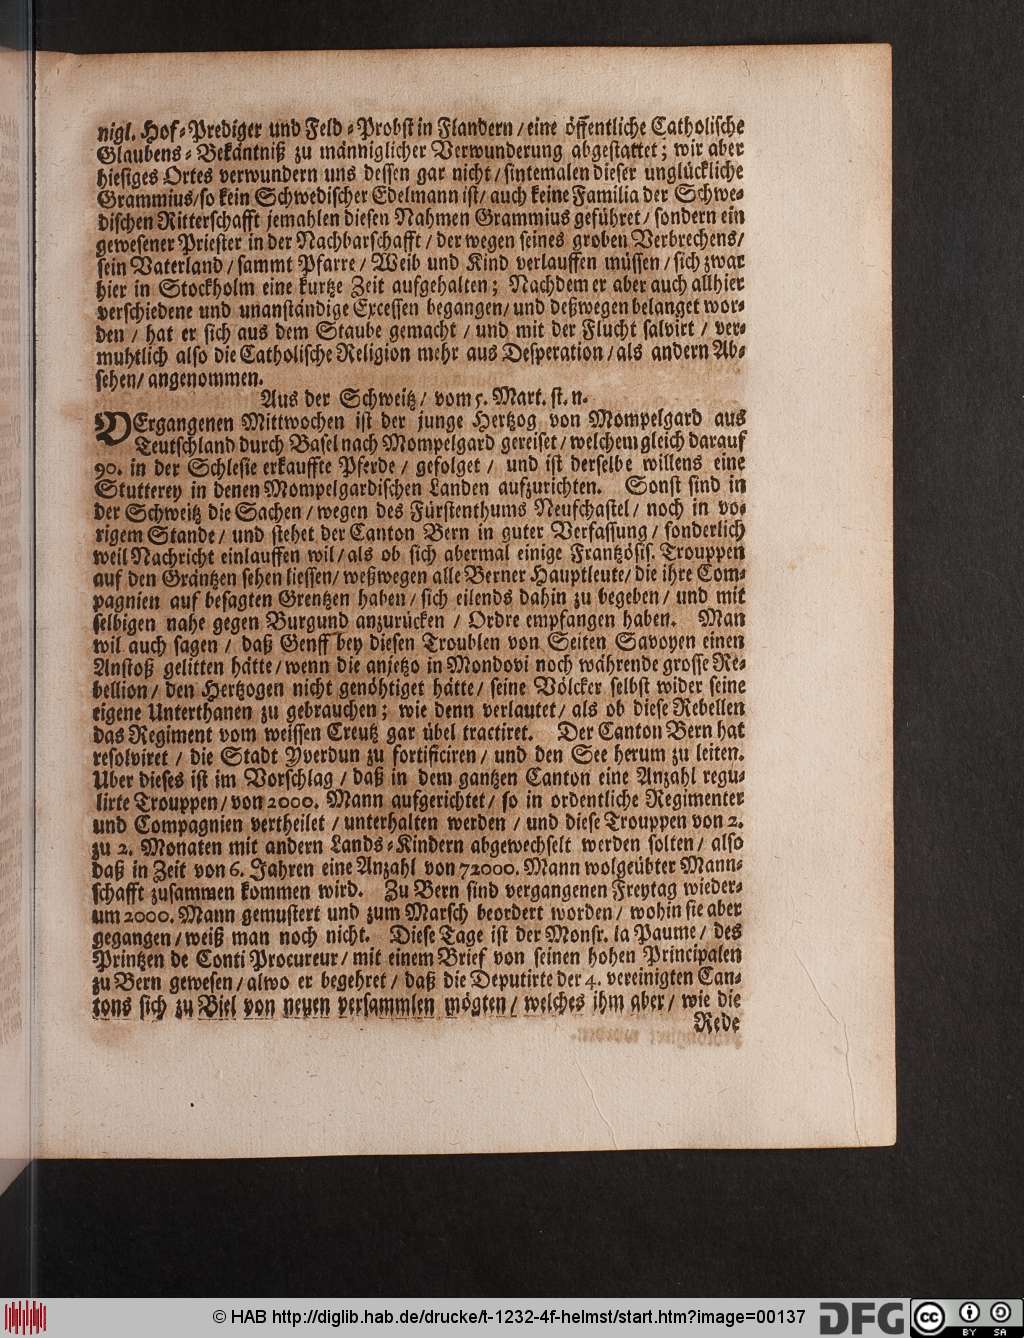 nigl. Hof-Prediger und Feld-Probst in Flandern / eine öffentliche Catholische
Glaubens-Bekäntniß zu männiglicher Verwunderung abgestattet; wir aber
hiesiges Ortes verwundern uns dessen gar nicht / sintemalen dieser unglückliche
Grammius / so kein Schwedischer Edelmann ist / auch keine Familia der Schwe-
dischen Ritterschafft jemahlen diesen Nahmen Grammius geführet / sondern ein
gewesener Priester in der Nachbarschafft / der wegen seines groben Verbrechens /
sein Vaterland / sammt Pfarre / Weib und Kind verlauffen müssen / sich zwar
hier in Stockholm eine kurtze Zeit aufgehalten; Nachdem er aber auch allhier
verschiedene und unanständige Excessen begangen / und deßwegen belanget wor-
den / hat er sich aus dem Staube gemacht / und mit der Flucht salvirt / ver-
muhtlich also die Catholische Religion mehr aus Desperation / als andern Ab-
sehen / angenommen.
Aus der Schweitz / vom 5. Mart. st. n.
VErgangenen Mittwochen ist der junge Hertzog von Mompelgard aus
Teutschland durch Basel nach Mompelgard gereiset / welchem gleich darauf
90. in der Schlesie erkauffte Pferde / gefolget / und ist derselbe willens eine
Stutterey in denen Mompelgardischen Landen aufzurichten. Sonst sind in
der Schweitz die Sachen / wegen des Fürstenthums Neufchastel / noch in vo-
rigem Stande / und stehet der Canton Bern in guter Verfassung / sonderlich
weil Nachricht einlauffen wil / als ob sich abermal einige Frantzösis. Trouppen
auf den Gräntzen sehen liessen / weßwegen alle Berner Hauptleute / die ihre Com-
pagnien auf besagten Grentzen haben / sich eilends dahin zu begeben / und mit
selbigen nahe gegen Burgund anzurücken / Ordre empfangen haben. Man
wil auch sagen / daß Genff bey diesen Troublen von Seiten Savoyen einen
Anstoß gelitten hätte / wenn die anjetzo in Mondovi noch währende grosse Re-
bellion / den Hertzogen nicht genöhtiget hätte / seine Völcker selbst wider seine
eigene Unterthanen zu gebrauchen; wie denn verlautet / als ob diese Rebellen
das Regiment vom weissen Creutz gar übel tractiret. Der Canton Bern hat
resolviret / die Stadt Yverdun zu fortificiren / und den See herum zu leiten.
Uber dieses ist im Vorschlag / daß in dem gantzen Canton eine Anzahl regu-
lirte Trouppen / von 2000. Mann aufgerichtet / so in ordentliche Regimenter
und Compagnien vertheilet / unterhalten werden / und diese Trouppen von 2.
zu 2. Monaten mit andern Lands-Kindern abgewechselt werden solten / also
daß in Zeit von 6. Jahren eine Anzahl von 72000. Mann wolgeübter Mann-
schafft zusammen kommen wird. Zu Bern sind vergangenen Freytag wieder-
um 2000. Mann gemustert und zum Marsch beordert worden / wohin sie aber
gegangen / weiß man noch nicht. Diese Tage ist der Monsr. la Paume / des
Printzen de Conti Procureur / mit einem Brief von seinen hohen Principalen
zu Bern gewesen / alwo er begehret / daß die Deputirte der 4. vereinigten Can-
tons sich zu Biel von neuen versammlen mögten / welches ihm aber / wie die
Rede
© HAB http://diglib.hab.de/drucke/t-1232-4f-helmst/start.htm?image=00137
DFG
cc BY SA